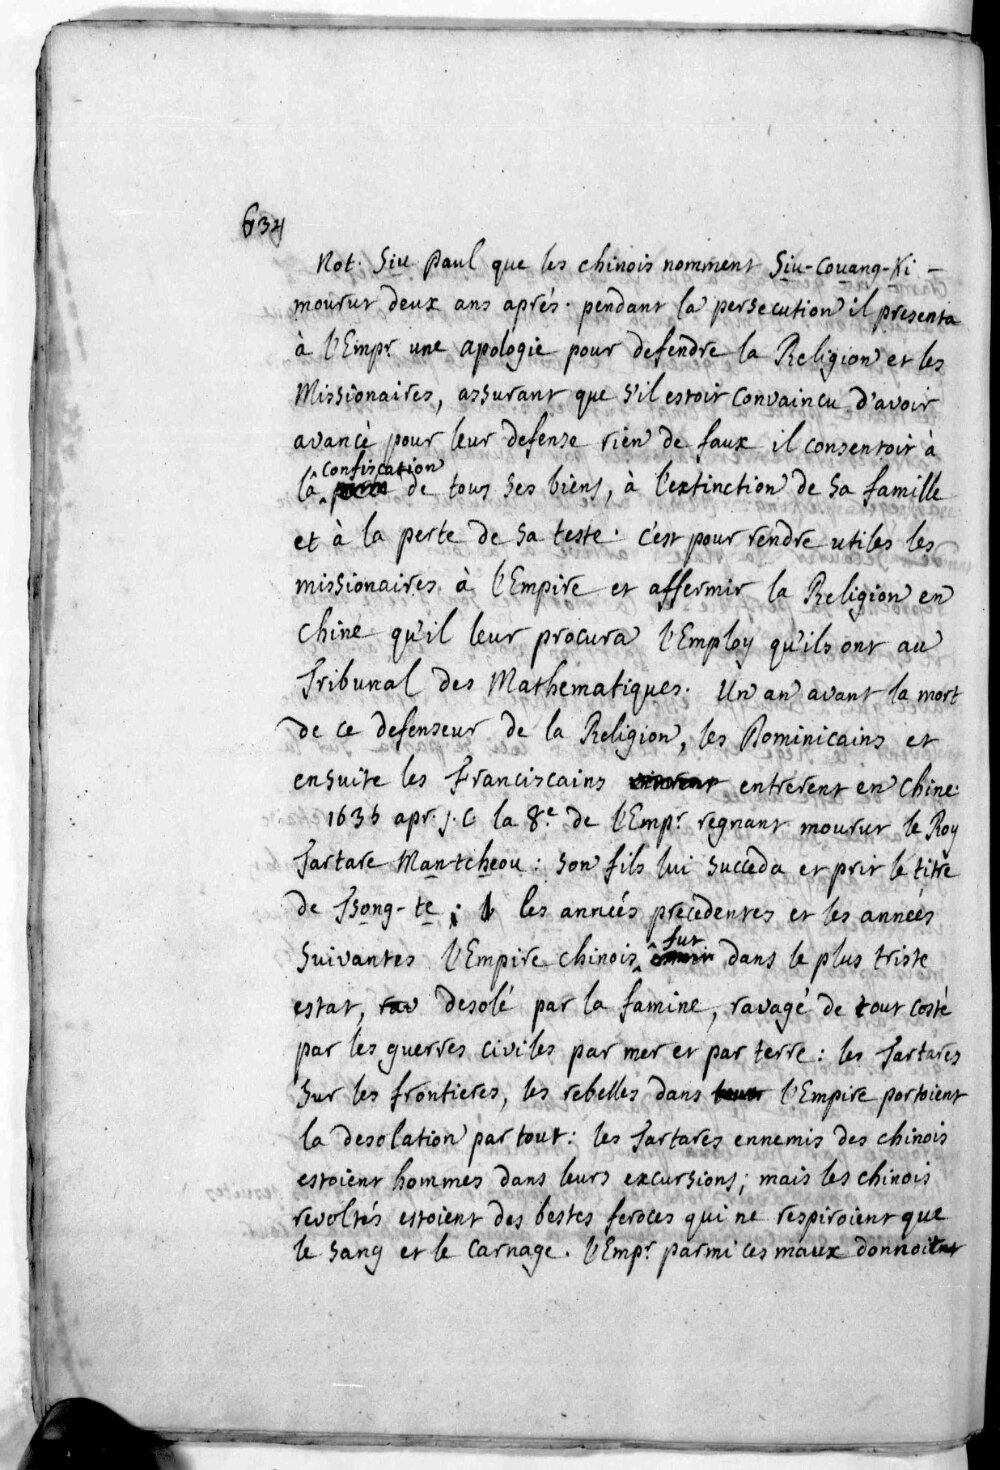 634
Not. Siu Paul que les chinois nomment Siu-Couang-Ki –
mourut deux ans aprés. pendant la persecution il presenta
à l'Empr. une apologie pour defendre la Religion et les
Missionaires, assurant que s'il estoit convaincu d'avoir
avancé pour leur defense rien de faux il consentoit à
la confiscation de tous ses biens, à l'extinction de sa famille
et à la perte de sa teste. c'est pour rendre utiles les
missionaires à l'Empire et affermir la Religion en
Chine qu'il leur procura l'Employ qu'ils ont au
Tribunal des Mathématiques. Un an avant la mort
de ce defenseur de la Religion, les Dominicains et
ensuite les Franciscains entrerent en Chine.
1636 apr. J. C la 8.e de l'Empr. regnant mourut le Roy
Tartare Mantcheou : son fils lui succeda et prit le titre
de Tsong-te ; les années précédentes et les années
suivantes l'Empire chinois fut dans le plus triste
estat, desolé par la famine, ravagé de tout costé
par les guerres civiles par mer et par terre : les Tartares
sur les frontieres, les rebelles dans l'Empire portoient
la desolation par tout : les Tartares ennemis des chinois
estoient hommes dans leurs excursions ; mais les chinois
revoltés estoient des bestes feroces qui ne respiroient que
le sang et le carnage. l'Empr. parmi ces maux donnoit